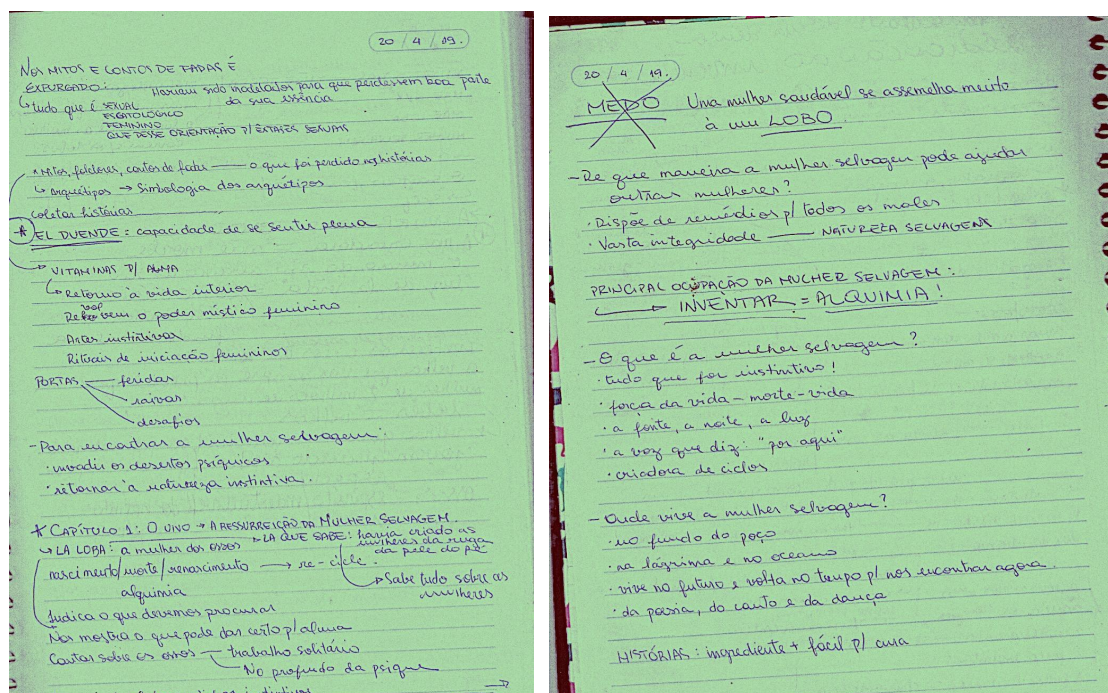 20 / 4 / 19.
NOS MITOS E CONTOS DE FADAS É
EXPURGADO:
Haviam sido maltelados para que perdessem boa parte
da sua essência
↳ tudo que é SEXUAL
ESCATOLÓGICO
FEMININO
QUE DESSE ORIENTAÇÃO P/ ÊXTASES SEXUAIS
* Mitos, folclores, contos de fada — o que foi perdido nas histórias
↳ arquétipos → Simbologia dos arquétipos
coletar histórias
* EL DUENDE: capacidade de se sentir plena
→ VITAMINAS P/ ALMA
↳ Retorno à vida interior
o poder místico feminino
Artes instintivas
Rituais de iniciação femininos
PORTAS — feridas
raivas
desafios
- Para encontrar a mulher selvagem:
· invadir os desertos psíquicos
· retornar à natureza instintiva.
* CAPÍTULO 1: O UIVO → A RESSURREIÇÃO DA MULHER SELVAGEM.
↳ LA LOBA: a mulher dos ossos
→ LA QUE SABE: havia criado as
mulheres da ruga
da pele do pé
nascimento/morte/renascimento → re-cicle.
alquimia
→ Sabe tudo sobre as
mulheres
Indica o que devemos procurar
Nos mostra o que pode dar certo p/ alma
Cantar sobre os ossos — trabalho solitário
No profundo da psique
20 / 4 / 19.
MEDO
Uma mulher saudável se assemelha muito
à um LOBO.
- De que maneira a mulher selvagem pode ajudar
outras mulheres?
· Dispõe de remédios p/ todos os males
· Vasta integridade — NATUREZA SELVAGEM
PRINCIPAL OCUPAÇÃO DA MULHER SELVAGEM:
→ INVENTAR = ALQUIMIA!
- O que é a mulher selvagem?
· tudo que for instintivo!
· força da vida - morte - vida
· a fonte, a noite, a luz
· a voz que diz: "por aqui"
· criadora de ciclos
- Onde vive a mulher selvagem?
· no fundo do poço
· na lágrima e no oceano
· vive no futuro e volta no tempo p/ nos encontrar agora.
· da poesia, do canto e da dança
HISTÓRIAS: ingrediente + fácil p/ cura